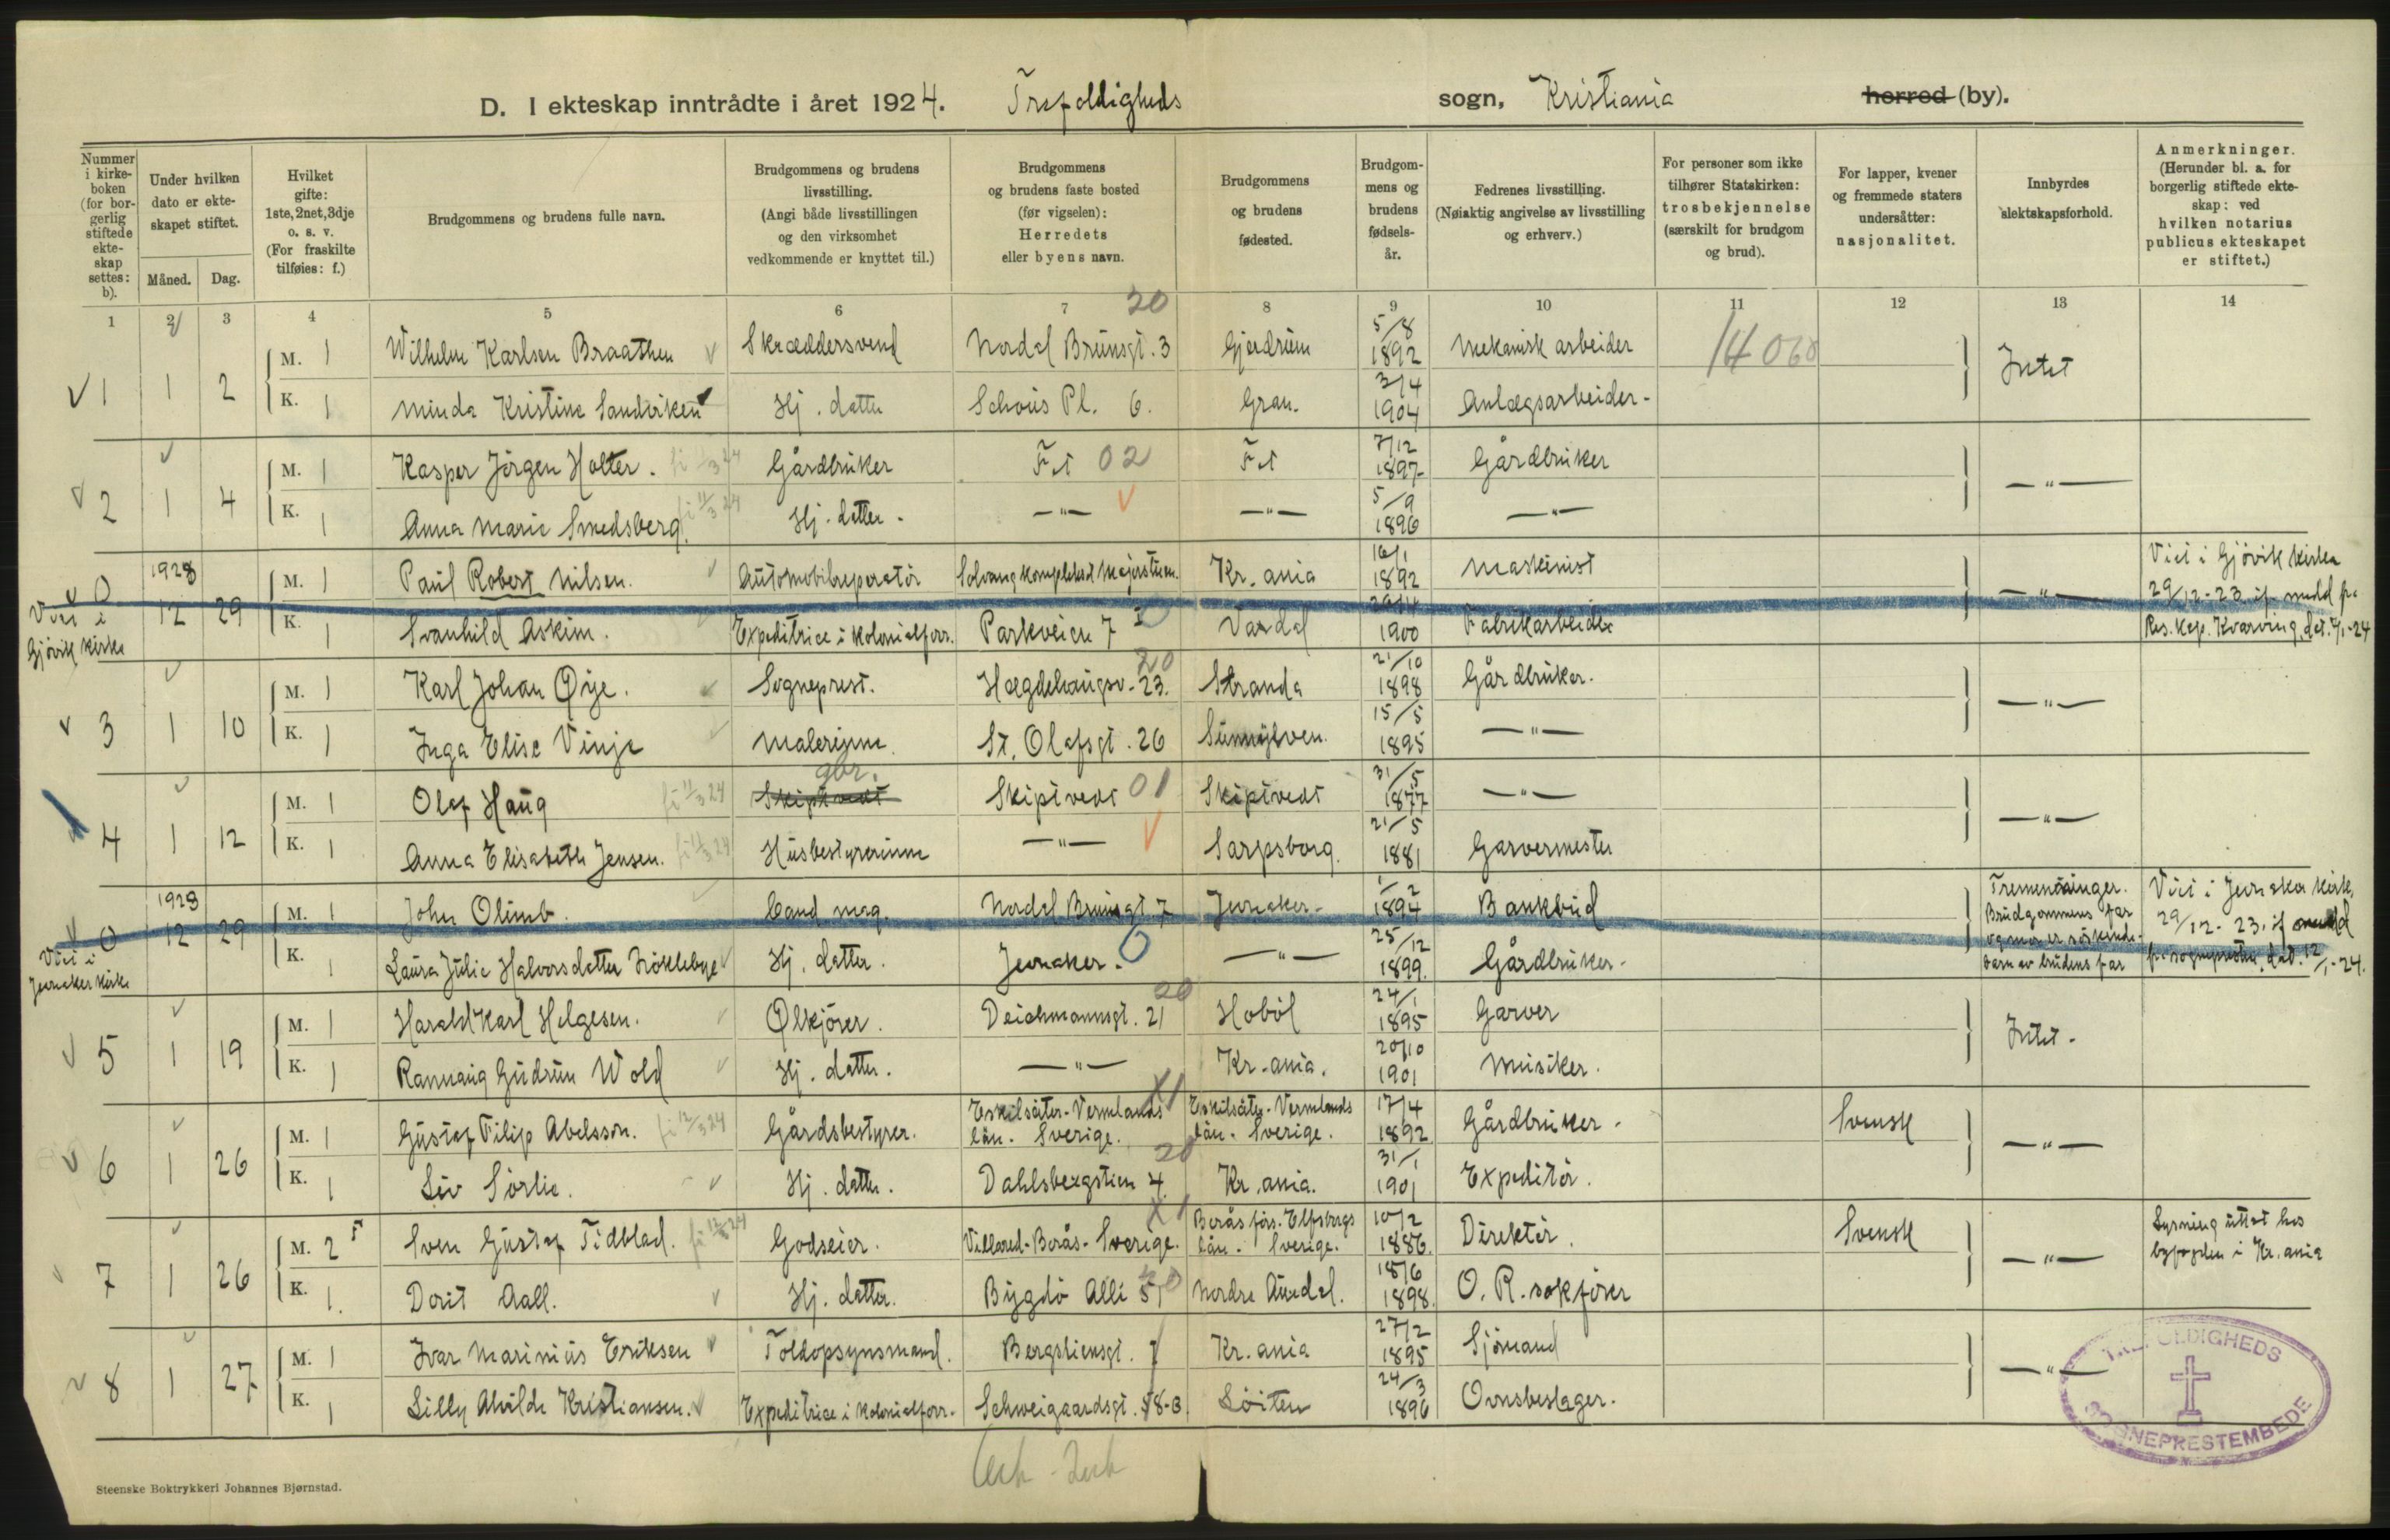 D. I ekteskap inntrådte i året 1924. Trefoldigheds sogn, Kristiania herred (by).
Nummer i kirkeboken (for borgerlig stiftede ekteskap settes: b).
Under hvilken dato er ekteskapet stiftet.
Måned. Dag.
Hvilket gifte: 1ste, 2net, 3dje o. s. v. (For fraskilte tilføies: f.)
Brudgommens og brudens fulle navn.
Brudgommens og brudens livsstilling. (Angi både livsstillingen og den virksomhet vedkommende er knyttet til.)
Brudgommens og brudens faste bosted (før vigselen): Herredets eller byens navn.
Brudgommens og brudens fødested.
Brudgommens og brudens fødselsår.
Fedrenes livsstilling. (Nøiaktig angivelse av livsstilling og erhverv.)
For personer som ikke tilhører Statskirken: trosbekjennelse (særskilt for brudgom og brud).
For lapper, kvener og fremmede staters undersåtter: nasjonalitet.
Innbyrdes slektskapsforhold.
Anmerkninger. (Herunder bl. a. for borgerlig stiftede ekteskap: ved hvilken notarius publicus ekteskapet er stiftet.)
1 2 3 4 5 6 7 8 9 10 11 12 13 14
20
1 1 2 M. 1 Wilhelm Karlsen Braathen Skræddersvend Nordal Brunsgt. 3 Gjerdrum 5/8 1892 Mekanisk arbeider 14060 Intet
K. 1 Minda Kristine Sandviken Hj. datter Schous Pl. 6. Gran. 3/4 1904 Anlægsarbeider -
2 1 4 M. 1 Kasper Jörgen Holter. Gårdbruker Fet 02 Fet 7/12 1897 Gårdbruker —"—
K. 1 Anna Marie Smedsberg. Hj. datter. —"— —"— 5/9 1896 —"—
0 1923 12 29 M. 1 Paul Robert Nilsen. Automobilreparatör Solvang komplekset Majorstuen. Kr.ania 16/1 1892 Maskinist —"— Viet i Gjövik kirke 29/12-23 if. medd fra Res. kap. Kvarving, dat. 4/1-24
Viet i Gjövik kirke K. 1 Svanhild Askim. Expeditrice i kolonialforr. Parkveien 7 Vardal 1900 Fabrikarbeider
20
3 1 10 M. 1 Karl Johan Øye. Sogneprest. Hægdehaugsv. 23. Stranda 21/10 1898 Gårdbruker. —"—
K. 1 Inga Elise Vinje Malerinne. St. Olafsgt. 26 Sunnylven. 15/5 1895 —"—
4 1 12 M. 1 Olaf Haug gbr. Skiptvedt Skiptvedt 01 Skiptvedt 31/5 1877 —"— —"—
K. 1 Anna Elisabeth Jensen. Husbestyrerinne —"— Sarpsborg. 21/5 1881 Garvermester
0 1923 12 29 M. 1 John Olimb. Cand mag. Nordal Brunsgt 7 Jevnaker - 1/2 1894 Bankbud Tremenninger. Brudgommens far og mor er söskendebarn av brudens far Viet i Jevnaker kirke, 29/12-23. if medd fra sognepresten, dat. 12/1-24.
Viet i Jevnaker kirke K. 1 Laura Julie Halvorsdatter Tröklebye Hj. datter. Jevnaker. 0 —"— 25/12 1899. Gårdbruker -
20
5 1 19 M. 1 Harald Karl Helgesen. Ølkjörer. Deichmannsgt. 21 Hoböl 24/1 1895 Garver Intet -
K. 1 Rannaug Gudrun Wold Hj. datter. —"— Kr.ania. 20/10 1901 Musiker.
X1
6 1 26 M. 1 Gustaf Filip Abelsson. fi 12/3 24 Gårdsbestyrer. Eskilsäter-Vermlands län. Sverige. Eskilsäter-Vermlands län. Sverige. 17/4 1892 Gårdbruker - Svensk —"—
20
K. 1 Liv Sörlie. Hj. datter. Dahlsbergstien 4. Kr.ania. 31/1 1901 Expeditör.
X1
7 1 26 M. 2 Sven Gustaf Tidblad. fi 12/3 24 Godseier. Villared-Borås-Sverige. Borås förs. Elfsborgs län. Sverige. 10/2 1886. Direktör. Svensk —"— Lysning uttat hos byfogden i Kr.ania
K. 1. Dorit Aall. Hj. datter. Bygdö Allé 51 Nordre Aurdal. 18/6 1898. O. R. sakförer
8 1 27 M. 1 Ivar Marinius Eriksen Toldopsynsmand. Bergsliensgt. 7 Kr.ania 27/2 1895 Sjömand —"—
K. 1 Lilly Alvilde Kristiansen. Expeditrice i kolonialforr. Schweigaardsgt. 58-B Löiten 24/3 1896 Ovnsbeslager.
TREFOLDIGHEDS SOGNEPRESTEMBEDE
Steenske Boktrykkeri Johannes Bjørnstad.